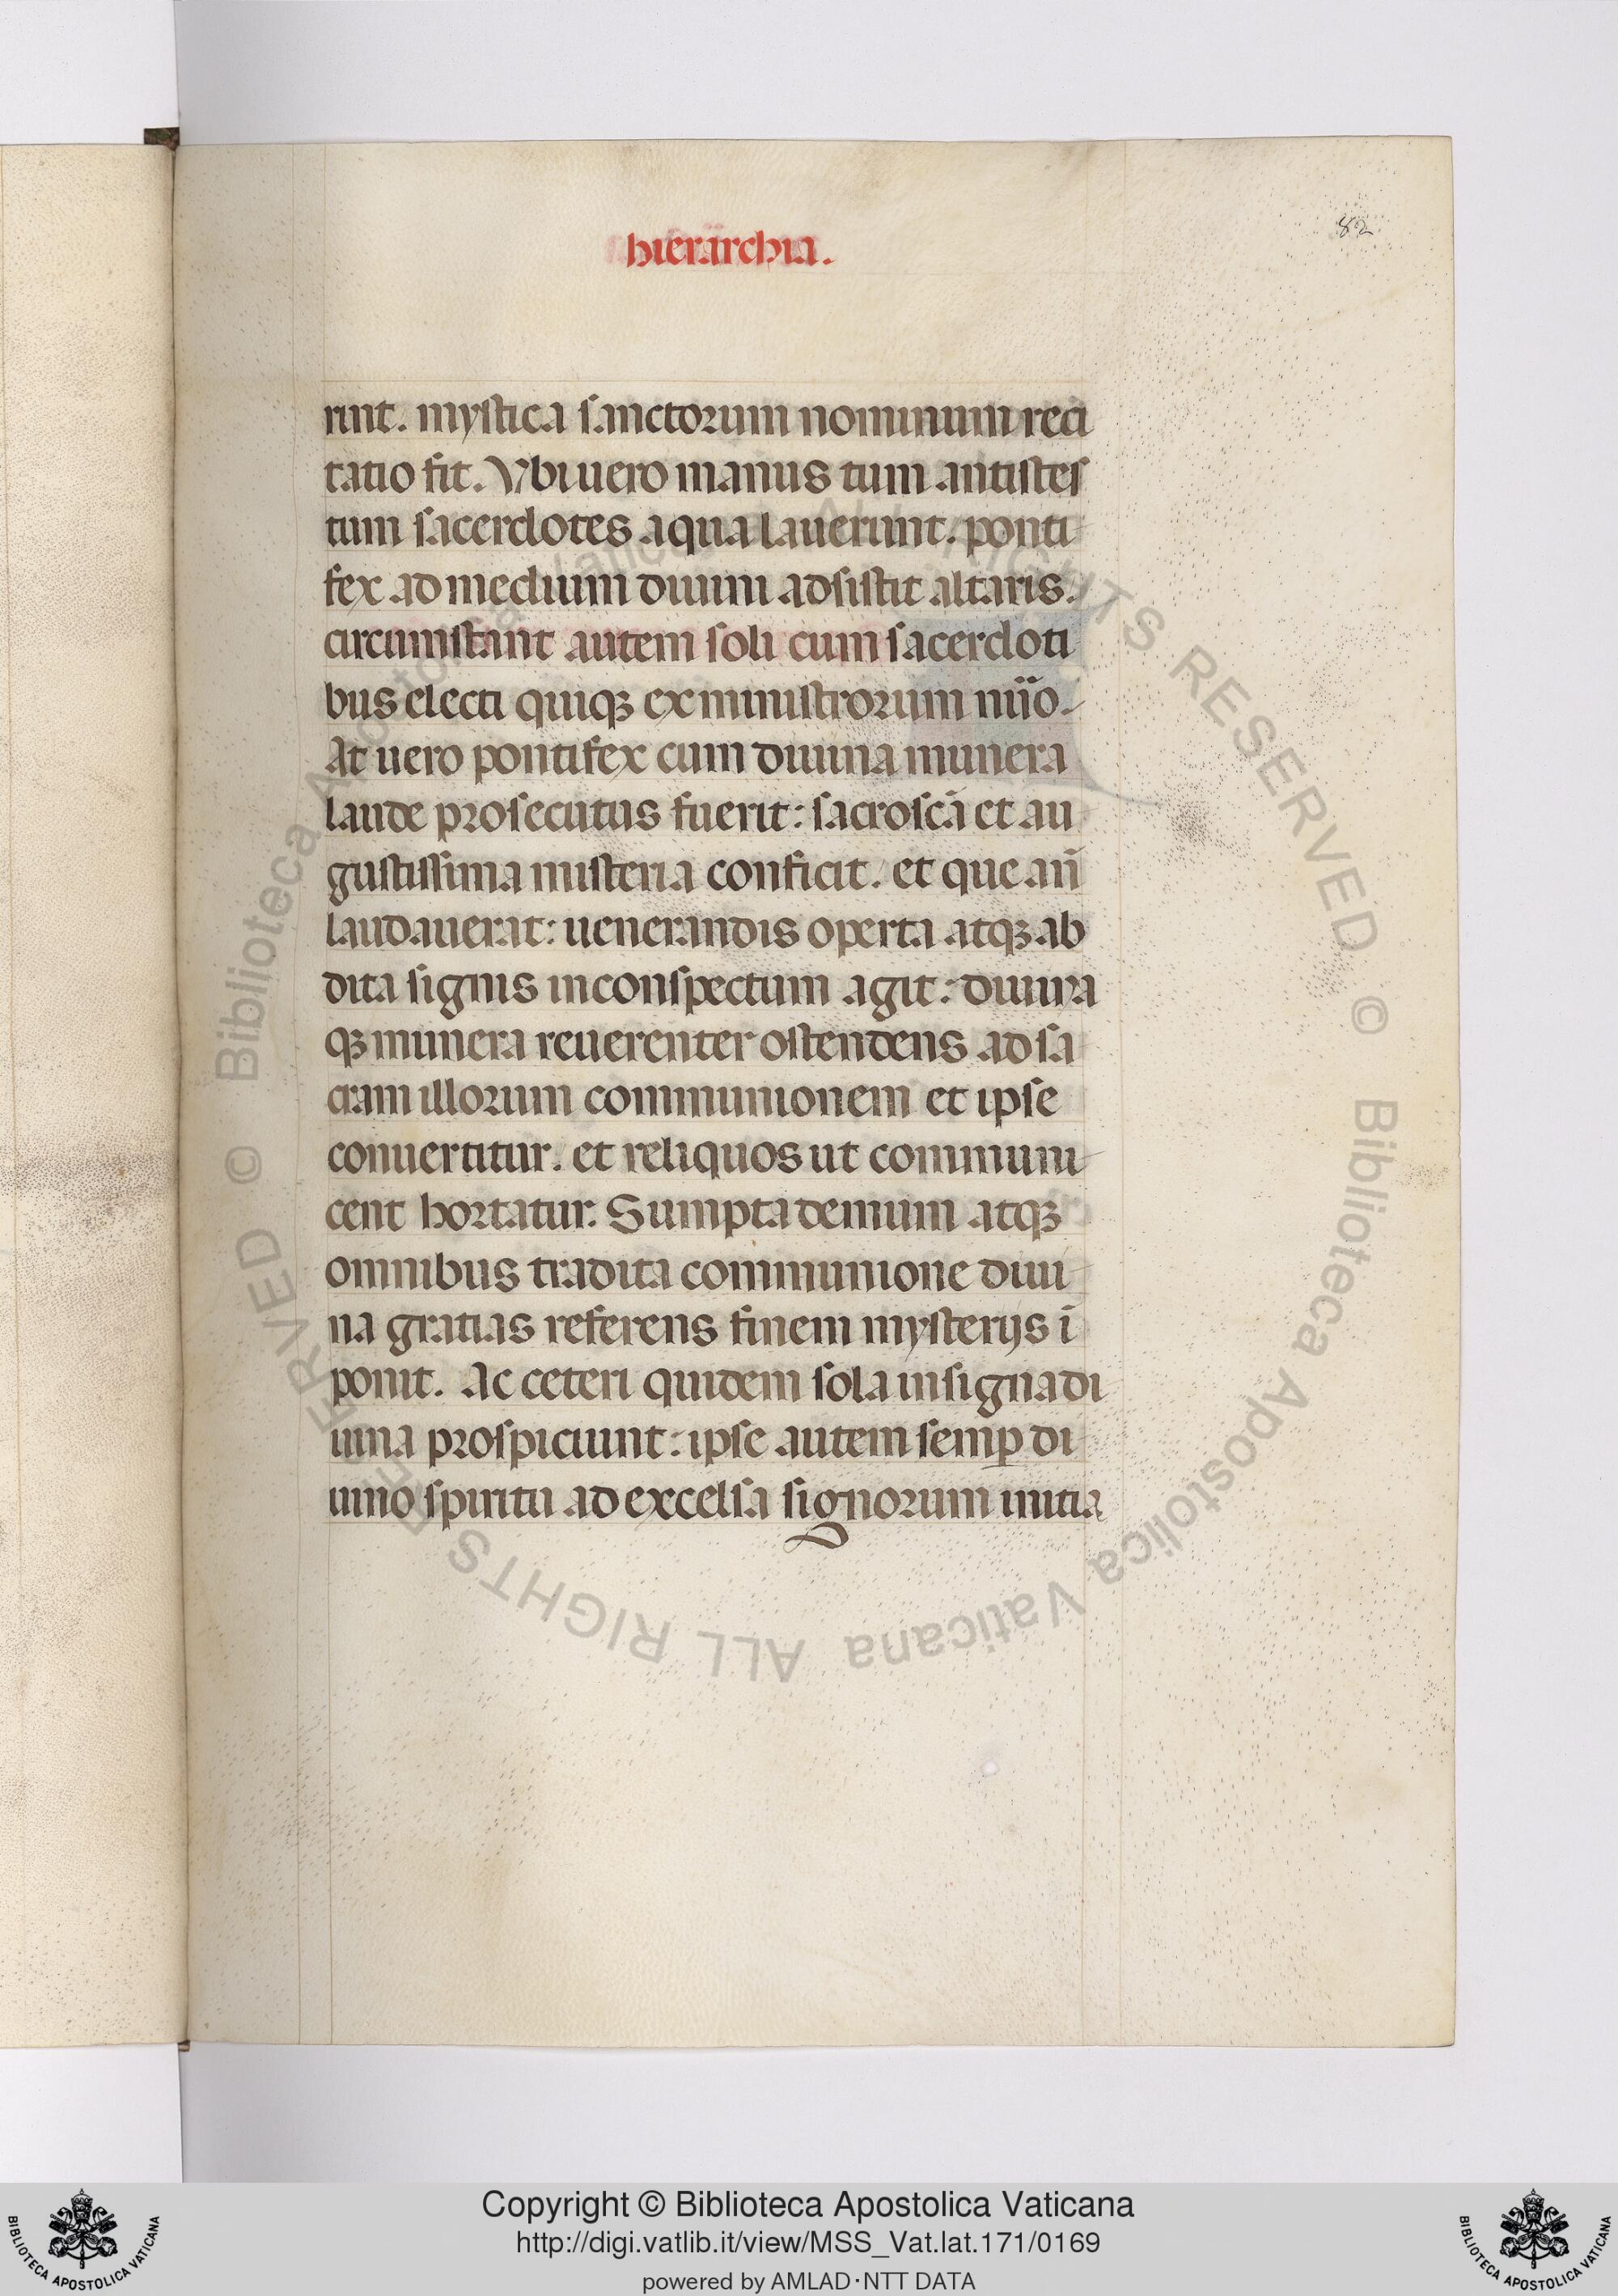 hierarchia.
82
rint. mystica sanctorum nominum reci
tatio fit. Vbi uero manus tum antistes
tum sacerdotes aqua lauerunt. ponti
fex ad medium diuini adsistit altaris.
circumstant autem soli cum sacerdoti
bus electi quiqꝫ ex ministrorum nũio.
At uero pontifex cum diuina munera
laude prosecutus fuerit: sacroscã et au
gustissima misteria conficit. et que añ
laudauerat: uenerandis operta atqꝫ ab
dita signis in conspectum agit: diuina
qꝫ munera reuerenter ostendens ad sa
cram illorum communionem et ipse
conuertitur. et reliquos ut communi
cent hortatur. Sumpta demum atqꝫ
omnibus tradita communione diui
na gratias referens finem mysterijs ĩ
ponit. Ac ceteri quidem sola insigna di
uina prospiciunt: ipse autem semꝑ di
uino spiritu ad excelsa signorum initia
© Biblioteca Apostolica Vaticana ALL RIGHTS RESERVED © Biblioteca Apostolica Vaticana ALL RIGHTS RESERVED
Copyright © Biblioteca Apostolica Vaticana
http://digi.vatlib.it/view/MSS_Vat.lat.171/0169
powered by AMLAD·NTT DATA
BIBLIOTECA APOSTOLICA VATICANA
BIBLIOTECA APOSTOLICA VATICANA